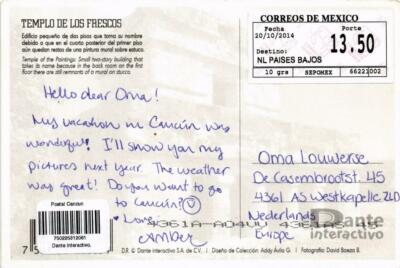 TEMPLO DE LOS FRESCOS
Edificio pequeño de dos pisos que toma su nombre
debido a que en el cuarto posterior del primer piso
aún quedan restos de una pintura mural sobre estuco.
Temple of the Paintings: Small two-story building that
takes its name because in the back room on the first
floor there are still remnants of a mural on stucco.
CORREOS DE MEXICO
Fecha Porte
20/10/2014
13.50
Destino:
NL PAISES BAJOS
10 grs SEPOMEX 66221002
Hello dear Oma!
My vacation in Cancún was
wonderful! I'll show you my
pictures next year. The weather
was great! Do you want to go
to Cancún?
Love,
Amber
Oma Louwerse
De Casembrootst. 45
4361 AS Westkapelle ZLD
Nederlands
Europe
Postal Cancun
Dante Interactivo.
Dante
interactivo
D.R. © Dante Interactivo S.A. de C.V. | Diseño de Colección: Addy Ávila G. | Fotografía: David Baeza B.